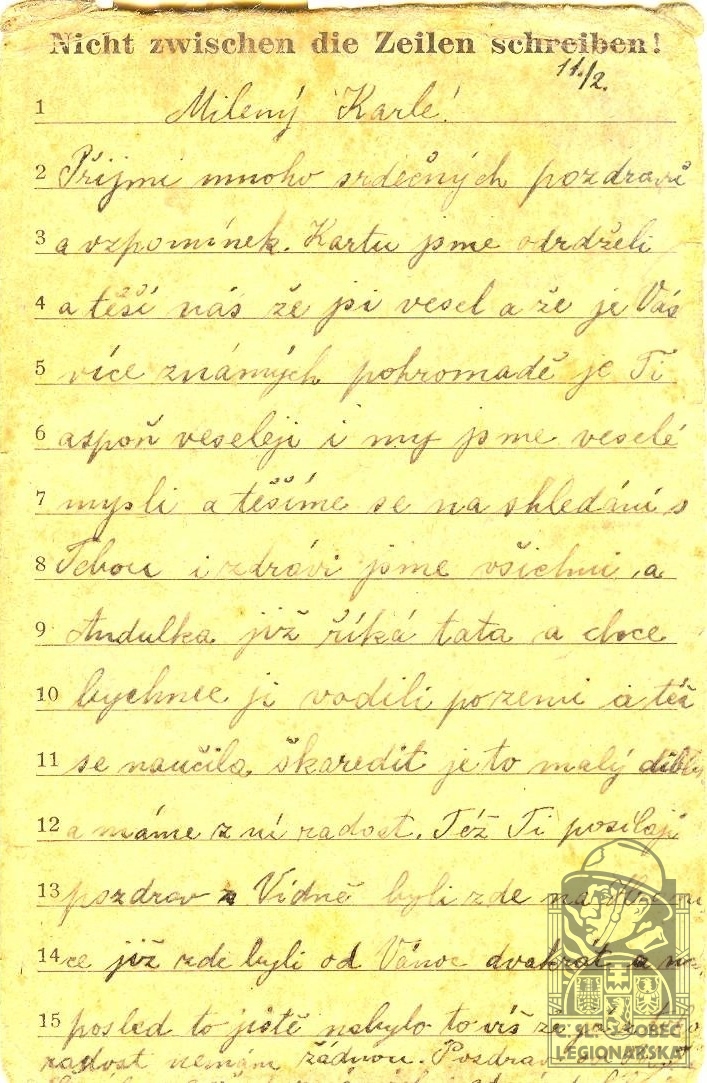 Nicht zwischen die Zeilen schreiben!
11./2.
1 Milený Karle!
2 Přijmi mnoho srdečných pozdravů
3 a vzpomínek. Kartu jsme održeli
4 a těší nás že jsi vesel a že je Vás
5 více známých pohromadě je Ti
6 aspoň veseleji i my jsme veselé
7 mysli a těšíme se na shledání s
8 Tebou i zdrávi jsme všichni, a
9 Andulka již říká tata a chce
10 bychmee ji vodili po zemi a též
11 se naučila škaredit je to malý
12 a máme z ní radost. Též Ti posílají
13 pozdrav z Vídně byli zde na
14 ce již zde byli od Vánoc dvakrát a
15 posled to ještě nebylo to víš že
radost nemám žádnou. Pozdrav
Č SL. OBEC
LEGIONÁŘSKÁ